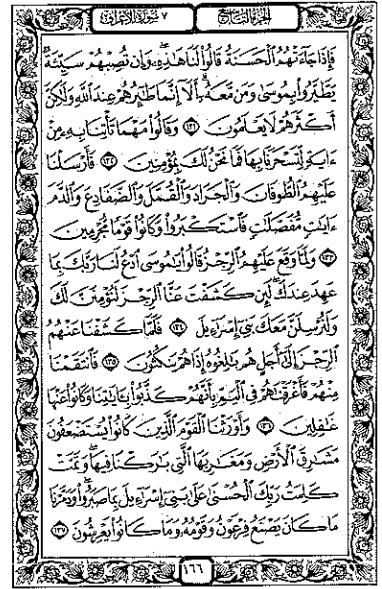 الجزء التاسع
٧ سورة الأعراف
فَإِذَا جَآءَتْهُمُ ٱلْحَسَنَةُ قَالُوا۟ لَنَا هَـٰذِهِۦ وَإِن تُصِبْهُمْ سَيِّئَةٌ
يَطَّيَّرُوا۟ بِمُوسَىٰ وَمَن مَّعَهُۥٓ أَلَآ إِنَّمَا طَـٰٓئِرُهُمْ عِندَ ٱللَّهِ وَلَـٰكِنَّ
أَكْثَرَهُمْ لَا يَعْلَمُونَ ١٣١ وَقَالُوا۟ مَهْمَا تَأْتِنَا بِهِۦ مِنْ
ءَايَةٍ لِّتَسْحَرَنَا بِهَا فَمَا نَحْنُ لَكَ بِمُؤْمِنِينَ ١٣٢ فَأَرْسَلْنَا
عَلَيْهِمُ ٱلطُّوفَانَ وَٱلْجَرَادَ وَٱلْقُمَّلَ وَٱلضَّفَادِعَ وَٱلدَّمَ
ءَايَـٰتٍ مُّفَصَّلَـٰتٍ فَٱسْتَكْبَرُوا۟ وَكَانُوا۟ قَوْمًا مُّجْرِمِينَ
١٣٣ وَلَمَّا وَقَعَ عَلَيْهِمُ ٱلرِّجْزُ قَالُوا۟ يَـٰمُوسَى ٱدْعُ لَنَا رَبَّكَ بِمَا
عَهِدَ عِندَكَ لَئِن كَشَفْتَ عَنَّا ٱلرِّجْزَ لَنُؤْمِنَنَّ لَكَ
وَلَنُرْسِلَنَّ مَعَكَ بَنِىٓ إِسْرَٰٓءِيلَ ١٣٤ فَلَمَّا كَشَفْنَا عَنْهُمُ
ٱلرِّجْزَ إِلَىٰٓ أَجَلٍ هُم بَـٰلِغُوهُ إِذَا هُمْ يَنكُثُونَ ١٣٥ فَٱنتَقَمْنَا
مِنْهُمْ فَأَغْرَقْنَـٰهُمْ فِى ٱلْيَمِّ بِأَنَّهُمْ كَذَّبُوا۟ بِـَٔايَـٰتِنَا وَكَانُوا۟ عَنْهَا
غَـٰفِلِينَ ١٣٦ وَأَوْرَثْنَا ٱلْقَوْمَ ٱلَّذِينَ كَانُوا۟ يُسْتَضْعَفُونَ
مَشَـٰرِقَ ٱلْأَرْضِ وَمَغَـٰرِبَهَا ٱلَّتِى بَـٰرَكْنَا فِيهَا وَتَمَّتْ
كَلِمَتُ رَبِّكَ ٱلْحُسْنَىٰ عَلَىٰ بَنِىٓ إِسْرَٰٓءِيلَ بِمَا صَبَرُوا۟ وَدَمَّرْنَا
مَا كَانَ يَصْنَعُ فِرْعَوْنُ وَقَوْمُهُۥ وَمَا كَانُوا۟ يَعْرِشُونَ ١٣٧
١٦٦